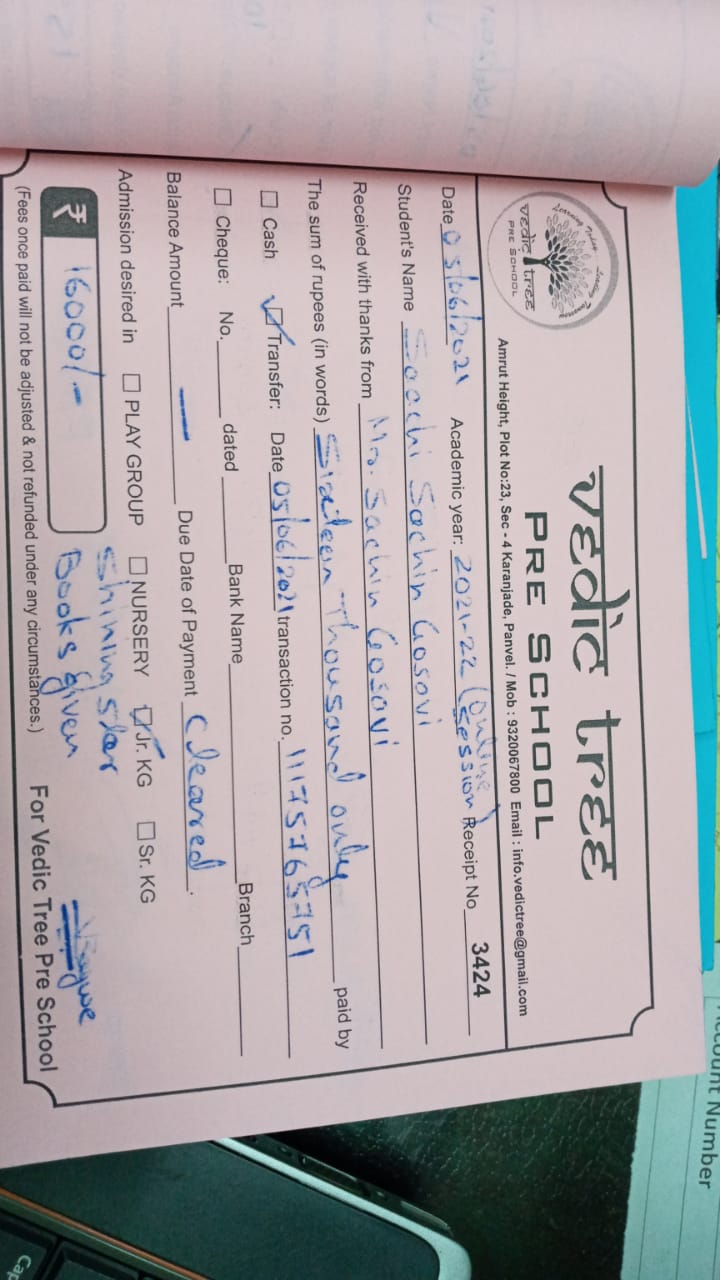 vedic tree
PRE SCHOOL
Learning Today - Leading Tomorrow
vedic tree
PRE SCHOOL
Amrut Height, Plot No:23, Sec - 4 Karanjade, Panvel. / Mob : 9320067800 Email : info.vedictree@gmail.com
Date 05/06/2021 Academic year: 2021-22 (Online Session) Receipt No 3424
Student's Name Saachi Sachin Gosavi
Received with thanks from Mr. Sachin Gosavi
The sum of rupees (in words) Sixteen Thousand only paid by
Cash Transfer: Date 05/06/2021 transaction no. 11175765751
Cheque: No. dated Bank Name Branch
Balance Amount — Due Date of Payment Cleared.
Admission desired in PLAY GROUP NURSERY Jr. KG Sr. KG
Shining star
₹ 16000/- Books given
(Fees once paid will not be adjusted & not refunded under any circumstances.) For Vedic Tree Pre School
Account Number
Cap